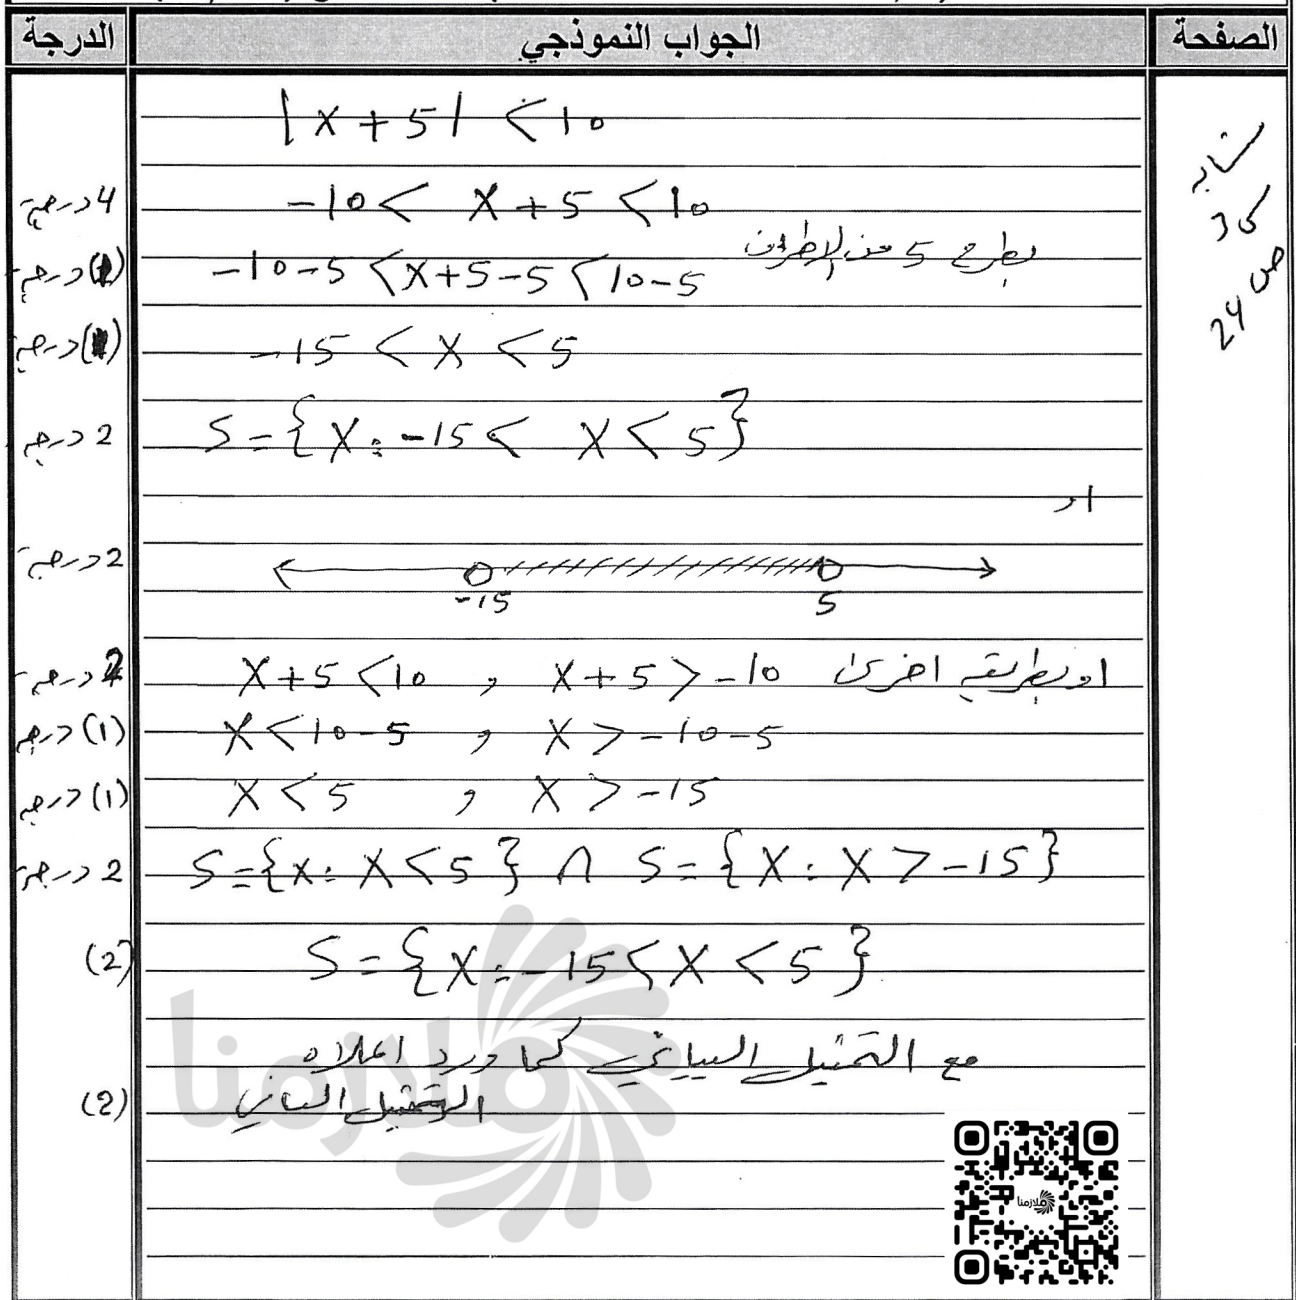 الصفحة الجواب النموذجي الدرجة
|x + 5| < 10
مشابه
ك 3
ص 24
-10 < x + 5 < 10 4 درجة
-10-5 < x+5-5 < 10-5 بطرح 5 من الاطراف (1) درجة
-15 < x < 5 (1) درجة
S = {x : -15 < x < 5} 2 درجة
او
-15 5 2 درجة
او بطريقة اخرى x+5 < 10 , x+5 > -10 2 درجة
x < 10-5 , x > -10-5 (1) درجة
x < 5 , x > -15 (1) درجة
S = {x : x < 5} ∩ S = {x : x > -15} 2 درجة
S = {x : -15 < x < 5} (2)
مع التمثيل البياني كما ورد اعلاه
التمثيل البياني (2)
ملازمنا
ملازمنا